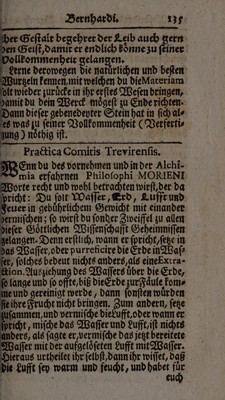 Bernhardi. 135
cher Gestalt begehret der Leib auch gern
den Geist, damit er endlich könne zu seiner
Vollkommenheit gelangen.
Lerne derowegen die natürlichen und besten
Wurtzeln kennen, mit welchen du die Materiam
solt wieder zurücke in ihr erstes Wesen bringen,
damit du dein Werck mögest zu Ende richten.
Dann dieser gebenedeyter Stein hat in sich al-
les was zu seiner Vollkommenheit (Verferti-
gung) nöthig ist.
Practica Comitis Trevirensis.
WEnn du des vornehmen und in der Alchi-
mia erfahrnen Philosophi MORIENI
Worte recht und wohl betrachten wirst, der da
spricht: Du solt Wasser, Erd, Lufft und
Feuer in gebührlichem Gewicht mit einander
vermischen; so wirst du sonder Zweiffel zu allen
dieser Göttlichen Wissenschafft Geheimnissen
gelangen. Denn erstlich, wann er spricht, setze in
das Wasser, oder putreficire die Erde in Was-
ser, solches bedeut nichts anders, als eine Extra-
ction. Ausziehung des Wassers über die Erde,
so lange und so offte, biß die Erde zur Fäule kom-
me und gereinigt werde, dann sonsten würden
sie ihre Frucht nicht bringen. Zum andern, setze
zusammen, und vermische die Lufft, oder wann er
spricht, mische das Wasser und Lufft, ist nichts
anders, als sagte er, vermische das jetzt bereitete
Wasser mit der aufgelöseten Lufft mit Wasser.
Hieraus urtheilet ihr selbst, dann ihr wisset, daß
die Lufft sey warm und feucht, und habet für
euch